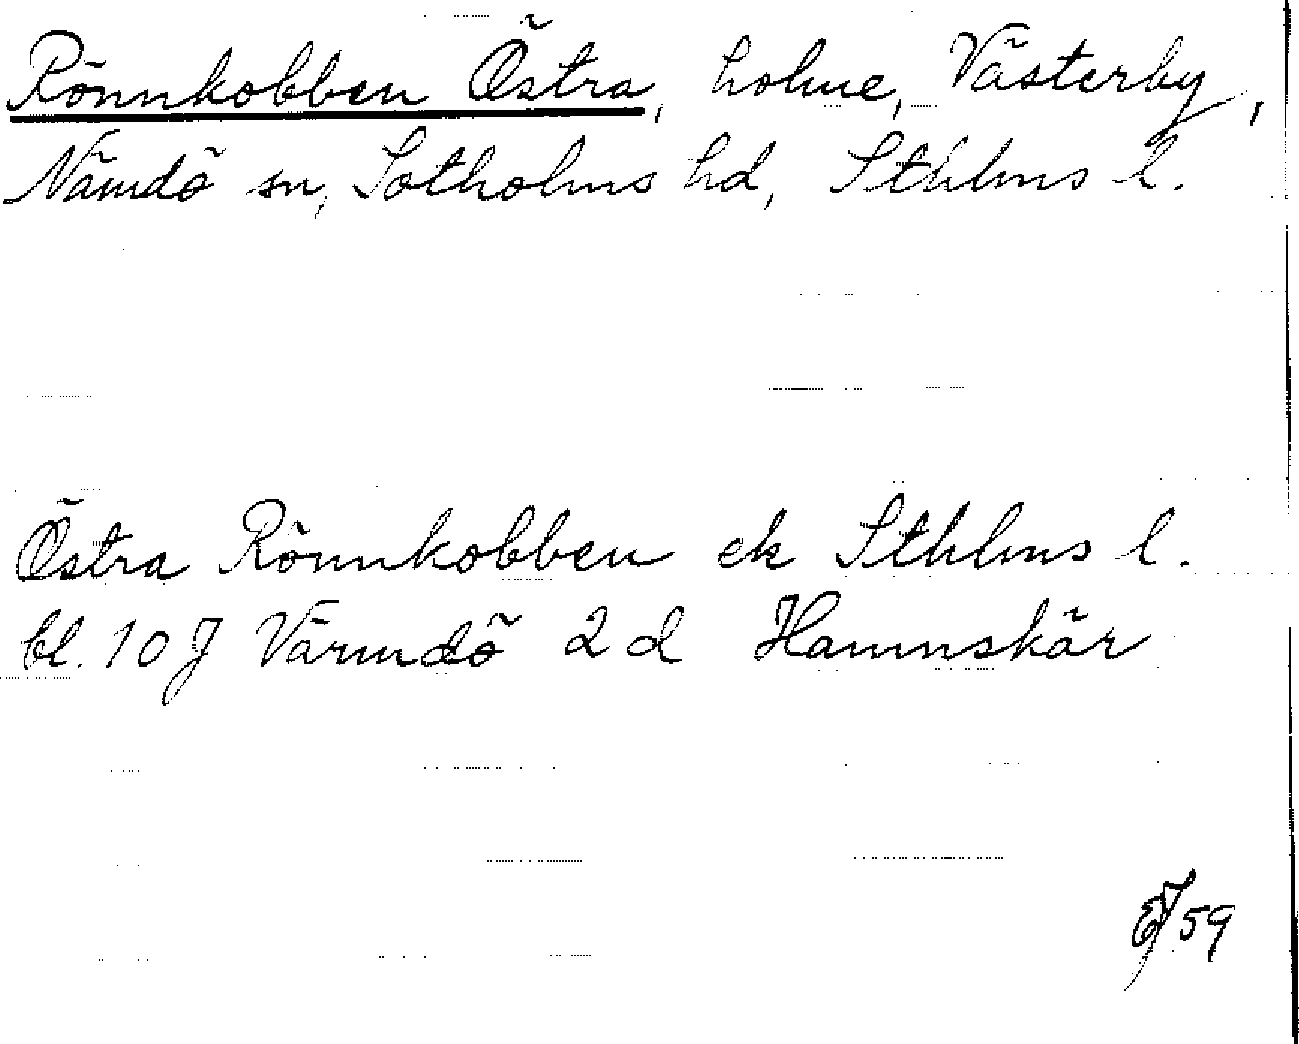 Rönnkobben Östra, holme, Västerby,
Nämdö sn, Sotholms hd, Sthlms l.
Östra Rönnkobben ek Sthlms l.
bl. 10 J Värmdö 2 d Hamnskär
EJ 59